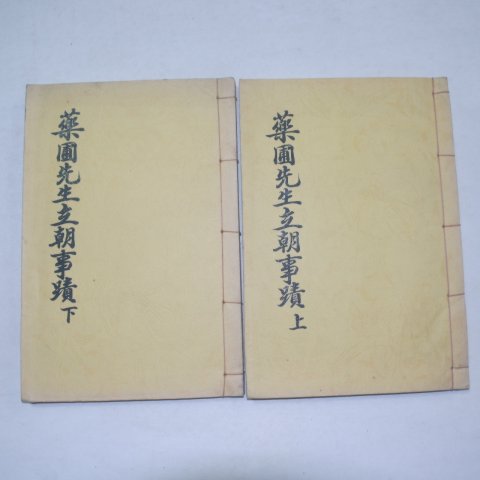 藥圃先生立朝事蹟 上
藥圃先生立朝事蹟 下